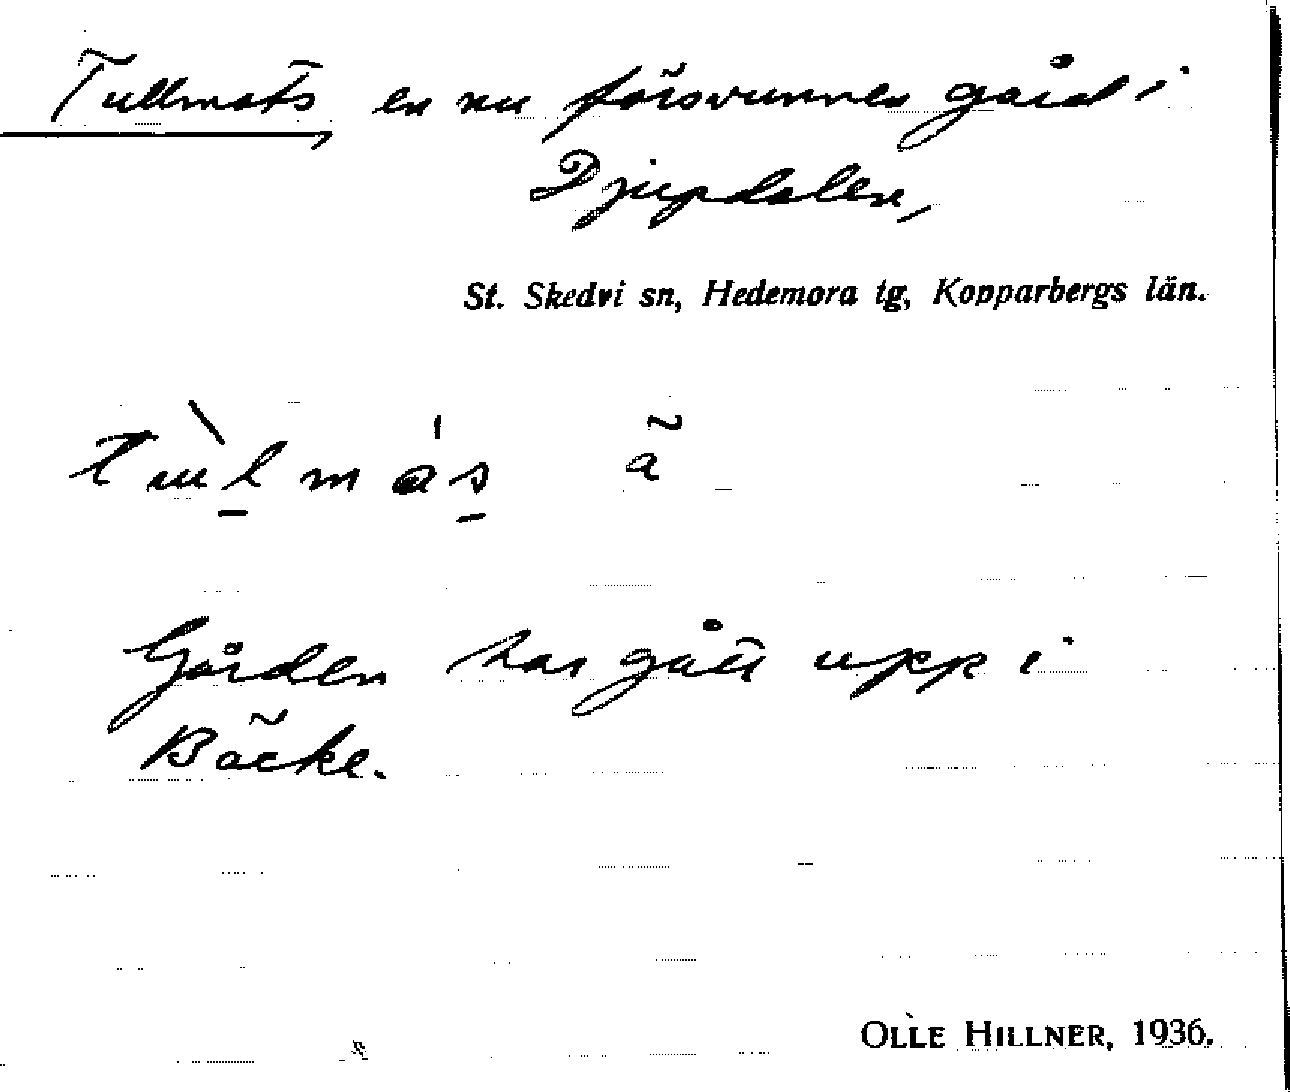 Tullmats, en nu försvunnen gård i
Djupdalen,
St. Skedvi sn, Hedemora tg, Kopparbergs län.
Gården har gått upp i
Bäcke.
OLLE HILLNER, 1936.